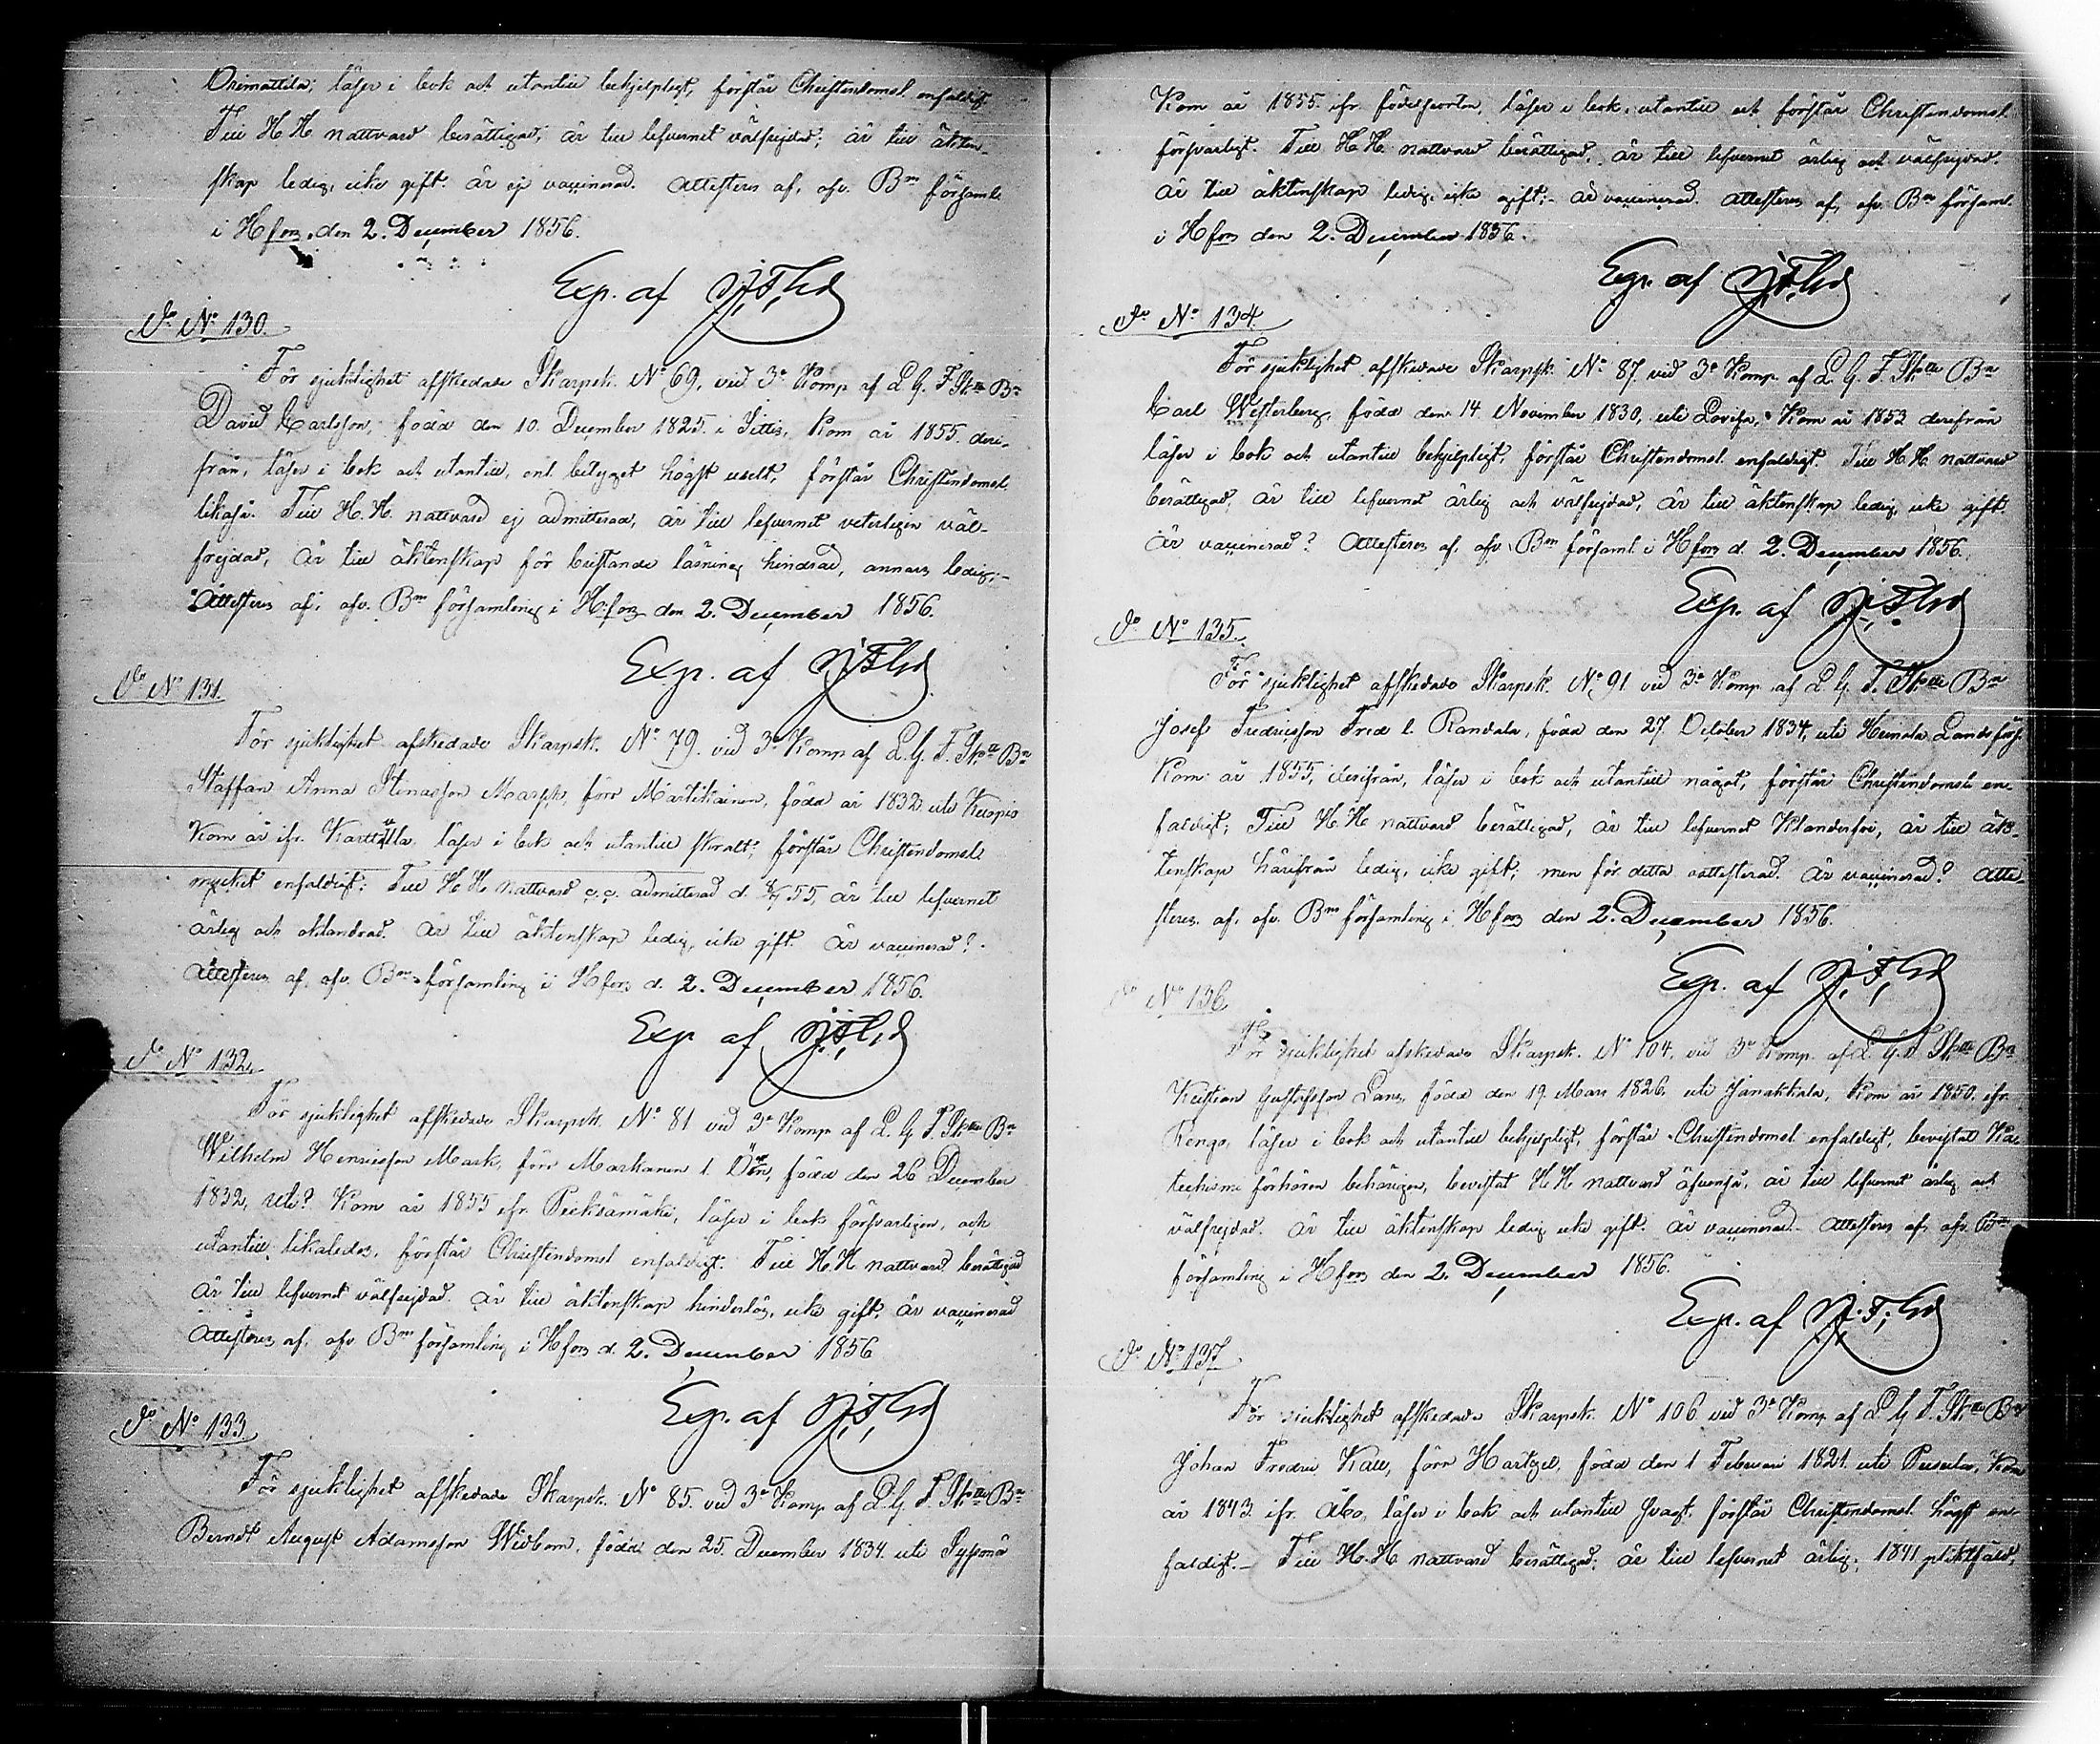 Orimattila; läser i bok och utantill behjelpligt, förstår Christendomsl. enfaldigt.
Till H.H. nattvard berättigad; är till lefvernet välfrejdad; är till äkten-
skap ledig, icke gift. är ej vaccinerad. Attesteras af, ofv. Bns församl.
i Hfors. den 2. December 1856.
Exp. af
No 130.
För sjuklighet afskedade Skarpsk. No 69, vid 3e Komp. af L. G. F. Sk.tte Bn
David Carlsson, född den 10. December 1825. i Sittis, Kom år 1855. deri-
från, läser i bok och utantill, enl. betyget högst uselt, förstår Christendomsl.
likaså. Till H.H. nattvard ej admitterad, är till lefvernet veterligen väl-
frejdad, är till äktenskap för bristande läsning hindrad, annars ledig;-
Attesteras af, ofv. Bns församling i H.fors den 2. December 1856.
Exp. af
No 131.
För sjuklighet afskedade Skarpsk. No 79. vid 3e Komp. af L. G. F. Sk.tte Bn
Staffan Anna Stinasson Marsch, förr Martikainen, född år 1832 uti Kuopio
Kom år ifr. Karttula, läser i bok och utantill skralt; förstår Christendomsl.
mycket enfaldigt; Till H.H. nattvard admitterad d. 55, är till lefvernet
ärlig och oklandrad. Är till äktenskap ledig, icke gift. Är vaccinerad?
Attesteras af, ofv. Bns församling i Hfors d. 2. December 1856.
Exp af
No 132.
För sjuklighet afskedade Skarpsk. No 81 vid 3e Komp af L. G. F. Sk.tte Bn
Wilhelm Henricsson Mark, förr Markanen l. född den 26 December
1832, uti? Kom år 1855 ifr. Pieksämäki, läser i bok försvarligen, och
utantill likaledes, förstår Christendomsl. enfaldigt. Till H.H. nattvard berättigad
är till lefvernet välfrejdad. är till äktenskap hinderlös, icke gift, är vaccinerad
Attesteras af, ofv. Bns församling i Hfors d. 2. December 1856
Exp. af
No 133
För sjuklighet afskedade Skarpsk. No 85. vid 3e Komp af L. G. F. Sk.tte Bn
Berndt August Adamsson Widbom, född den 25. December 1834. uti
Kom år 1855. ifr. födelseorten, läser i bok, utantill och förstår Christendomsl.
försvarligt. Till H.H. nattvard berättigad, är till lefvernet ärlig och välfrejdad.
är till äktenskap ledig, icke gift;- är vaccinerad. Attesteras af, ofv. Bns församl.
i Hfors den 2. December 1856.
Exp. af
No 134.
För sjuklighet afskedade Skarpsk. No 87. vid 3e Komp. af L. G. F. Sk.tte Bn
Carl Westerberg, född den 14 November 1830, uti Lovisa, Kom år 1853 derifrån
läser i bok och utantill behjelpligt, förstår Christendomsl. enfaldigt. Till H.H. nattvard
berättigad, är till lefvernet ärlig och välfrejdad, är till äktenskap ledig, icke gift.
är vaccinerad? Attesteras af, ofv. Bns församl. i Hfors d. 2. December 1856.
Exp. af
No 135.
För sjuklighet afskedade Skarpsk. No 91 vid 3e Komp af L. G. F. Sk.tte Bn
Josef Fredricsson Fred l. Randala, född den 27. October 1834, uti Heinola Lands förs.
Kom år 1855, derifrån, läser i bok och utantill något, förstår Christendomsl. en-
faldigt; Till H.H. nattvard berättigad, är till lefvernet klanderfri, är till äk-
tenskap härifrån ledig, icke gift; men för detta oattesterad. Är vaccinerad? Atte-
steras af, ofv. Bns församling i Hfors den 2. December 1856.
Exp. af
No 136
För sjuklighet afskedade Skarpsk. No 104. vid 3e Komp. af L. G. F. Sk.tte Bn
Kristian Gustafsson Lans, född den 19. Mars 1826. uti Janakkala, Kom år 1850. ifr.
Rengo, läser i bok och utantill behjelpligt, förstår Christendomsl. enfaldigt, bevistat Ka-
techismi förhören behörigen, bevistat H.H. nattvard äfvenså, är till lefvernet ärlig och
välfrejdad. är till äktenskap ledig, icke gift. är vaccinerad. Attesteras af, ofv. Bns
församling i Hfors den 2. December 1856.
Exp. af
No 137
För sjuklighet afskedade Skarpsk. No 106 vid 3e Komp. af L. G. F. Sk.tte Bn
Johan Fredric Kall, förr född den 1 Februari 1821. uti Pusula, Kom
år 1843. ifr. Åbo, läser i bok och utantill svagt. förstår Christendomsl. högst en-
faldigt.- Till H.H. nattvard berättigad; är till lefvernet ärlig; 1841 pliktfäld,